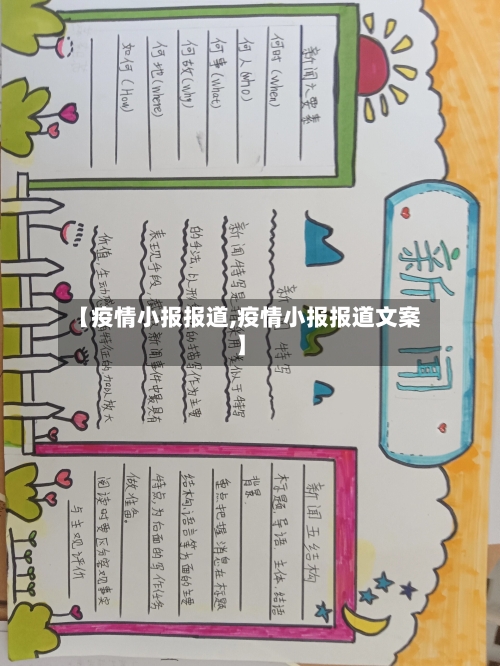 新闻
新闻六要素
何时(when)
何人(who)
何事(what)
何故(why)
何地(where)
如何(How)
新 特写
新闻特写是 用类似于特写
的手法,以形 的描写作为主要
表现手段, 新闻事件中最具有
价值、生动感 特征的 加以放大
新闻五结构
标题、导语、主体、结语
背景。
重点把握消息在标题
结构、语言等方面的主要
特点,为后面的写作任务
做准备。
阅读时要区分客观事实
与主观评价
【疫情小报报道,疫情小报报道文案
】